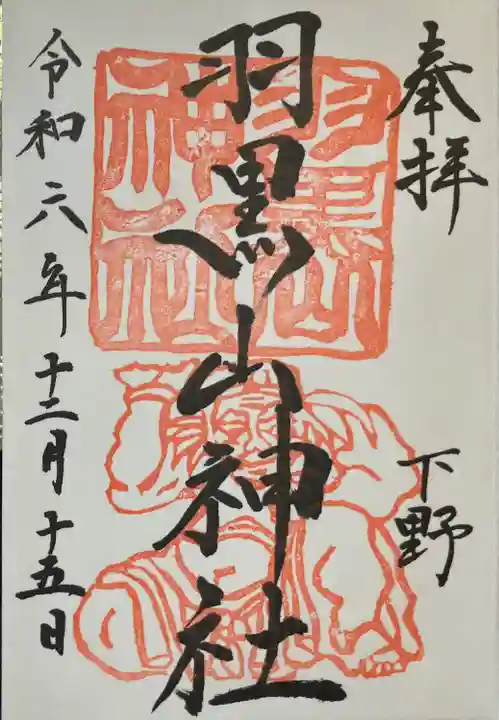 奉拝
下野
羽黒山神社
令和六年十二月十五日